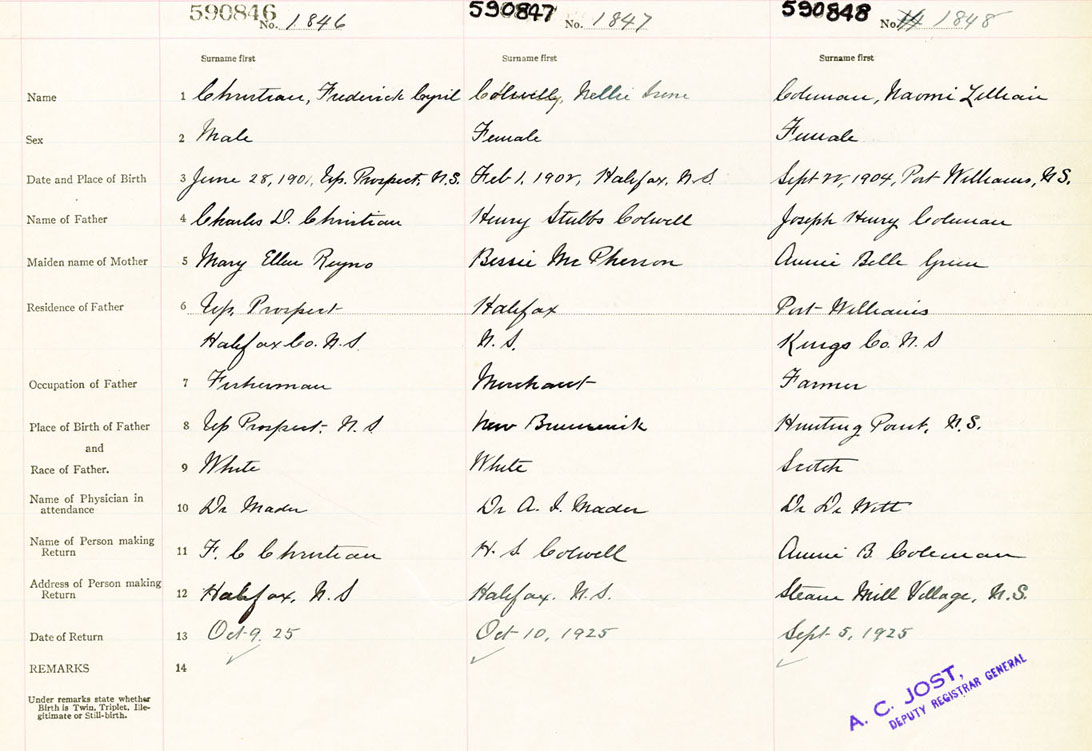 590846 No. 1846 590847 No. 1847 590848 No. 1848
Surname first Surname first Surname first
Name 1 Christian, Frederick Cyril Colwell, Nellie Irene Coleman, Naomi Lillian
Sex 2 Male Female Female
Date and Place of Birth 3 June 28, 1901, Up. Prospect, N.S. Feb 1, 1902, Halifax, N.S. Sept 22, 1904, Port Williams, N.S.
Name of Father 4 Charles D. Christian Henry Stubbs Colwell Joseph Henry Coleman
Maiden name of Mother 5 Mary Ellen Ryno Bessie McPherson Annie Belle Green
Residence of Father 6 Up. Prospect Halifax Port Williams
Halifax Co. N.S. N.S. Kings Co. N.S
Occupation of Father 7 Fisherman Merchant Farmer
Place of Birth of Father 8 Up Prospect, N.S New Brunswick Hunting Point, N.S.
and
Race of Father. 9 White White Scotch
Name of Physician in
attendance 10 Dr Mader Dr A. I. Mader Dr De Witt
Name of Person making
Return 11 F. C Christian H. S. Colwell Annie B. Coleman
Address of Person making
Return 12 Halifax, N.S Halifax. N.S. Steam Mill Village, N.S.
Date of Return 13 Oct 9. 25 Oct 10, 1925 Sept 5, 1925
REMARKS 14
Under remarks state whether
Birth is Twin, Triplet, Ille-
gitimate or Still-birth.
A. C. JOST,
DEPUTY REGISTRAR GENERAL